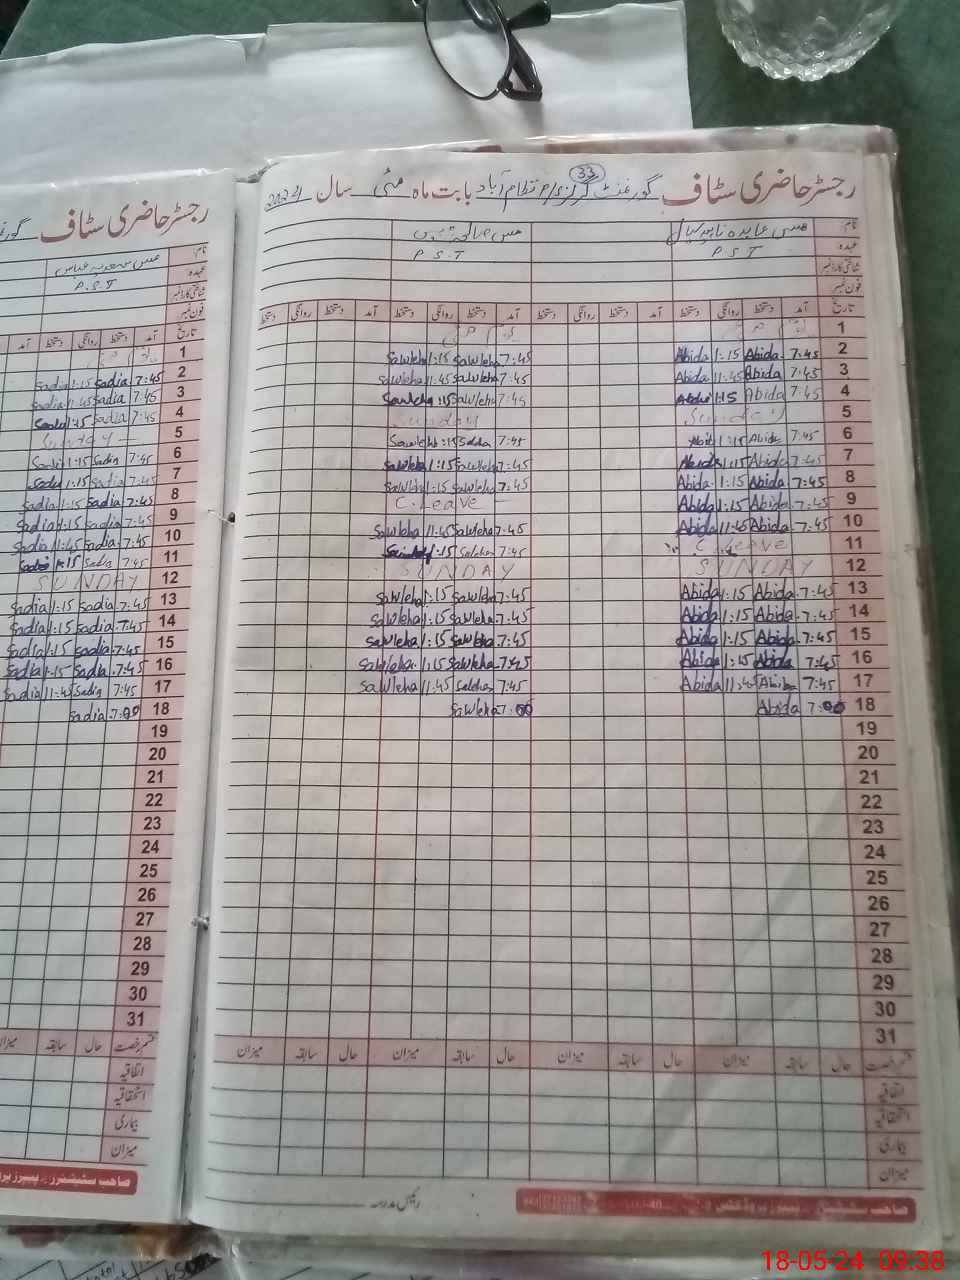 رجسٹر حاضری سٹاف گورنمنٹ گرلز نظام آباد بابت ماہ مئی سال 2024
33
نام مس عابدہ
عہدہ P.S.T P.S.T
شناختی کارڈ نمبر
فون نمبر
تاریخ آمد دستخط روانگی دستخط آمد دستخط روانگی دستخط آمد دستخط روانگی دستخط آمد دستخط روانگی دستخط
1
2 7:45 Abida 1:15 Abida 7:45 Sawleha 1:15 Sawleha
3 7:45 Abida 11:45 Abida 7:45 Sawleha 11:45 Sawleha
4 7:45 Abida 1:15 7:45 Sawleha 1:15 Sawleha
5 Sunday Sunday
6 7:45 Abida 1:15 7:45 1:15
7 7:45 Abida 1:15 7:45 Sawleha 1:15 Sawleha
8 7:45 Abida 1:15 Abida 7:45 Sawleha 1:15 Sawleha
9 7:45 Abida 1:15 Abida C.Leave
10 7:45 Abida 11:45 Abida 7:45 Sawleha 11:45 Sawleha
11 C.Leave 7:45 1:15
12 SUNDAY SUNDAY
13 7:45 Abida 1:15 Abida 7:45 Sawleha 1:15 Sawleha
14 7:45 Abida 1:15 Abida 7:45 Sawleha 1:15 Sawleha
15 7:45 Abida 1:15 Abida 7:45 Sawleha 1:15 Sawleha
16 7:45 Abida 1:15 Abida 7:45 Sawleha 1:15 Sawleha
17 7:45 Abida 11:45 Abida 7:45 11:45 Sawleha
18 7:00 Abida 7:00 Sawleha
19
20
21
22
23
24
25
26
27
28
29
30
31
قسم رخصت حال سابقہ میزان حال سابقہ میزان حال سابقہ میزان حال سابقہ میزان
اتفاقیہ
استحقاقیہ
بیماری
میزان
رئیس مدرسہ
رجسٹر حاضری سٹاف
نام مس سعدیہ عباس
عہدہ P.S.T
شناختی کارڈ نمبر
فون نمبر
تاریخ آمد دستخط روانگی دستخط آمد
1
2 7:45 Sadia 1:15 Sadia
3 7:45 Sadia 11:45 Sadia
4 7:45 Sadia 1:15
5 Sunday
6 7:45 Sadia 1:15 Sadia
7 7:45 Sadia 1:15
8 7:45 Sadia 1:15 Sadia
9 7:45 Sadia 1:15 Sadia
10 7:45 Sadia 11:45 Sadia
11 7:45 Sadia 1:15
12 SUNDAY
13 7:45 Sadia 1:15 Sadia
14 7:45 Sadia 1:15 Sadia
15 7:45 Sadia 1:15 Sadia
16 7:45 Sadia 1:15 Sadia
17 7:45 Sadia 11:45 Sadia
18 7:00 Sadia
19
20
21
22
23
24
25
26
27
28
29
30
31
قسم رخصت حال سابقہ میزان
اتفاقیہ
استحقاقیہ
بیماری
میزان
18-05-24 09:38